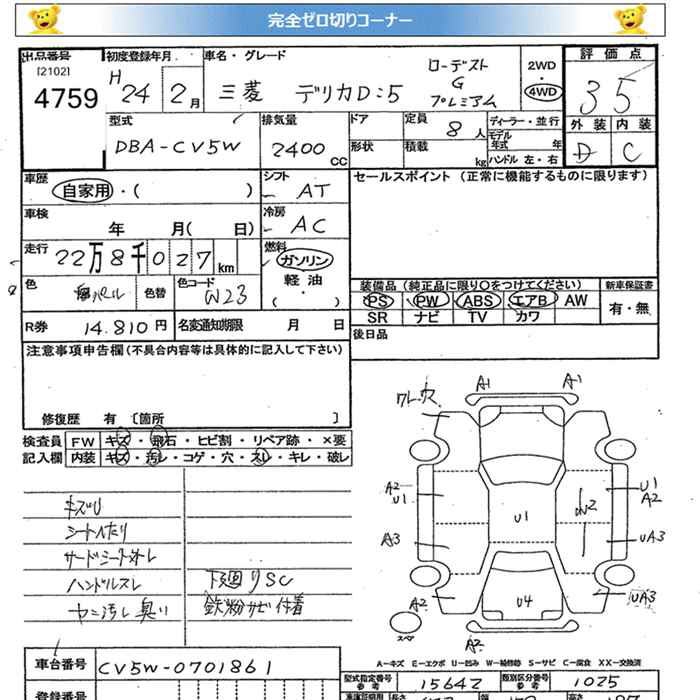 完全ゼロ切りコーナー
出品番号 初度登録年月 車名・グレード 2WD・4WD 評価点
[2102]
4759
H 24 2月 三菱 デリカD:5 ローデスト G プレミアム
35
型式 排気量 ドア 定員 8人 ディーラー・並行 外装 内装
DBA-CV5W 2400CC 形状 積載 kg モデル年式 年 ハンドル 左・右 D C
車歴 自家用・( ) シフト AT セールスポイント (正常に機能するものに限ります)
車検 年 月( 日) 冷房 AC
走行 22万8千027km 燃料 ガソリン 軽油 ( ・ )
色 パール 色替 色コード W23
装備品 (純正品に限り〇をつけてください) 新車保証書
PS PW ABS エアB AW 有・無
SR ナビ TV カワ
R券 14.810円 名変通知期限 月 日 後日品
注意事項申告欄 (不具合内容等は具体的に記入して下さい)
修復歴 有 [箇所 ]
検査員 FW キズ・飛石・ヒビ割・リペア跡・×要
記入欄 内装 キズ・汚レ・コゲ・穴・スレ・キレ・破レ
キズU
シートヘたり
サードシートオレ
ハンドルスレ 下廻りSC
ヤニ汚し臭い 鉄粉サビ付着
A1 A1
ワレ.穴
A2 U1 U1 A2
U1 W2
A3 UA3
A2 U4 UA3
スペア A2
A-キズ E-エクボ U-凹み W-補修跡 S-サビ C-腐食 XX-交換済
車台番号 CV5W-0701861
型式指定番号 参考 15642 類別区分番号 参考 1025
登録番号